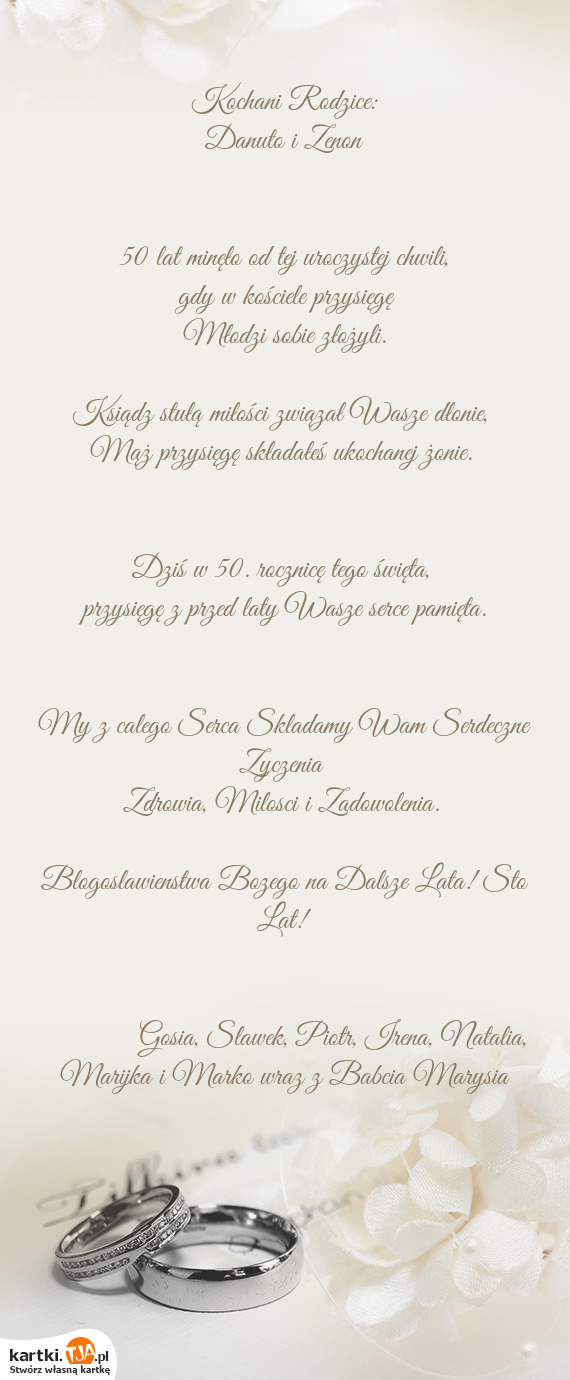 Kochani Rodzice:
Danuto i Zenon
50 lat minęło od tej uroczystej chwili,
gdy w kościele przysięgę
Młodzi sobie złożyli.
Ksiądz stułą miłości związał Wasze dłonie,
Mąż przysięgę składałeś ukochanej żonie.
Dziś w 50. rocznicę tego święta,
przysięgę z przed laty Wasze serce pamięta.
My z calego Serca Skladamy Wam Serdeczne
Zyczenia
Zdrowia, Milosci i Zadowolenia.
Blogoslawienstwa Bozego na Dalsze Lata! Sto
Lat!
Gosia, Slawek, Piotr, Irena, Natalia,
Marijka i Marko wraz z Babcia Marysia
kartki.TJA.pl
Stwórz własną kartkę